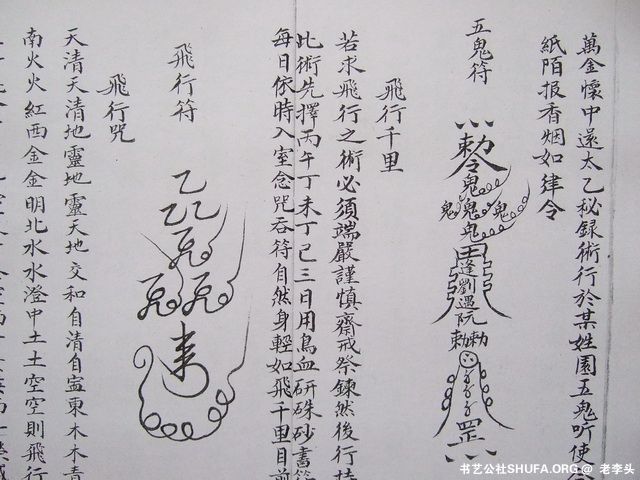 萬金懷中還太乙秘録術行於某姓園五鬼听使令
紙陌报香烟如律令
五鬼符
敕令
鬼
鬼鬼鬼
鬼
田
逢劉遇阮
勅勅
罡
飛行千里
若求飛行之術必須端嚴謹慎齋戒祭鍊然後行持
此術先擇丙午丁未丁巳三日用鳥血研硃砂書符
每日依時入室念咒吞符自然身輕如飛千里目前
飛行符
飛行咒
天清天清地靈地靈天地交和自清自寍東木木青
南火火紅西金金明北水水澄中土土空空則飛行
书艺公社SHUFA.ORG @ 老李头